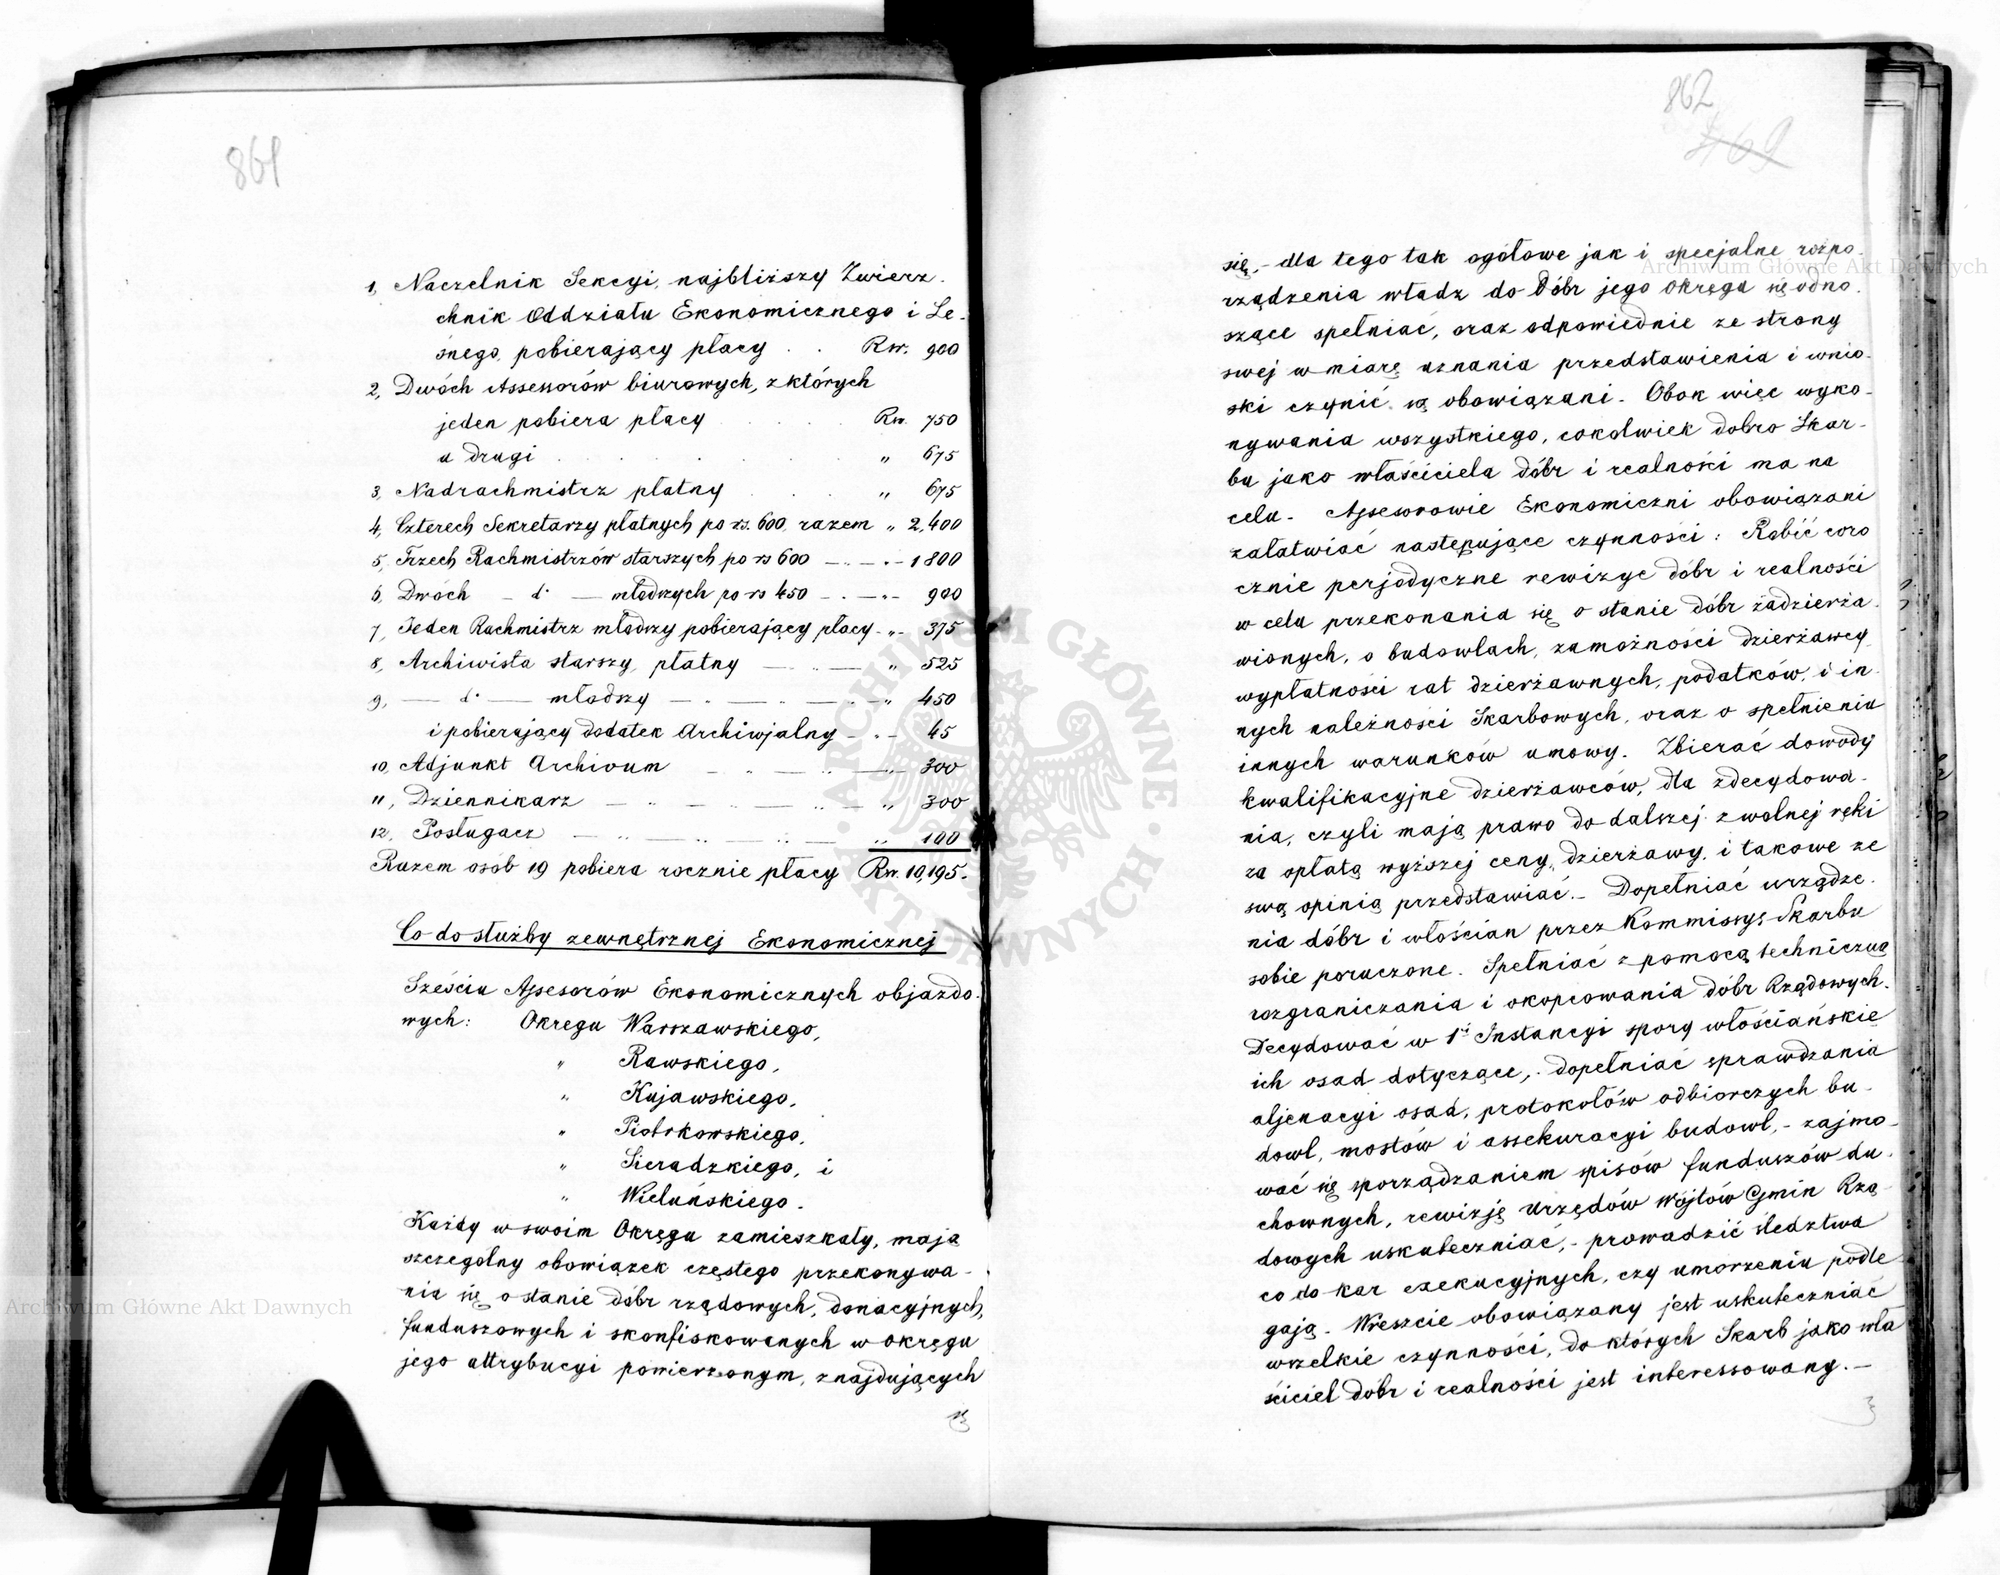 861
1, Naczelnik Sekcyi, najbliższy Zwierz-
chnik Oddziału Ekonomicznego i Le-
śnego, pobierający płacy . . Rsr. 900
2, Dwóch Assessorów biurowych, z których
jeden pobiera płacy . . . . Rsr. 750
a drugi . . . . . . „ 675
3, Nadrachmistrz płatny . . . „ 675
4, Czterech Sekretarzy płatnych po rs. 600, razem „ 2,400
5, Trzech Rachmistrzów starszych po rs 600 — „ — 1800
6, Dwóch — d° — młodszych po rs 450 — „ — 900
7, Jeden Rachmistrz młodszy pobierający płacy - „ - 375
8, Archiwista starszy, płatny — „ — „ 525
9, — d° — młodszy — „ — „ — „ 450
i pobierający dodatek Archiwjalny - „ - 45
10, Adjunkt Archivum — „ — „ — „ 300
11, Dziennikarz — „ — „ — „ — „ 300
12, Posługacz — „ — „ — „ 100
Razem osób 19 pobiera rocznie płacy Rsr. 10,195.
Co do służby zewnętrznej Ekonomicznej
Sześciu Assesorów Ekonomicznych objazdo-
wych: Okręgu Warszawskiego,
„ Rawskiego,
„ Kujawskiego,
„ Piotrkowskiego,
„ Sieradzkiego, i
„ Wieluńskiego.
Każdy w swoim Okręgu zamieszkały, mają
szczególny obowiązek częstego przekonywa-
nia się o stanie dóbr rządowych, donacyjnych,
funduszowych i skonfiskowanych w okręgu
jego attrybucyi powierzonym, znajdujących
862
769
się, - dla tego tak ogółowe jak i specjalne rozpo-
rządzenia władz do Dóbr jego Okręgu się odno-
szące spełniać, oraz odpowiednie ze strony
swej w miarę uznania przedstawienia i wnio-
ski czynić są obowiązani. Obok więc wyko-
nywania wszystkiego, cokolwiek dobro Skar-
bu jako właściciela dóbr i realności ma na
celu. Assesorowie Ekonomiczni obowiązani
załatwiać następujące czynności: Robić coro
cznie perjodyczne rewizye dóbr i realności
w celu przekonania się o stanie dóbr zadzierża-
wionych, o budowlach, zamożności dzierżawcy,
wypłatności rat dzierżawnych, podatków, i in-
nych należności Skarbowych, oraz o spełnieniu
innych warunków umowy. Zbierać dowody
kwalifikacyjne dzierżawców, dla zdecydowa-
nia, czyli mają prawo do dalszej z wolnej ręki
za opłatą wyższej ceny, dzierżawy, i takowe ze
swą opinią przedstawiać. - Dopełniać urządze-
nia dóbr i włościan przez Kommissyę Skarbu
sobie poruczone. Spełniać z pomocą techniczną
rozgraniczania i okopcowania dóbr Rządowych.
Decydować w 1éj Instancyi spory włościańskie
ich osad dotyczące, - dopełniać sprawdzania
aljenacyi osad, protokołów odbiorczych bu-
dowl, mostów i assekuracyi budowl, - zajmo-
wać się sporządzaniem spisów funduszów du-
chownych, rewizję Urzędów Wójtów Gmin Rzą-
dowych uskuteczniać, - prowadzić śledztwa
co do kar exekucyjnych, czy umorzeniu podle-
gają. Wreszcie obowiązany jest uskuteczniać
wszelkie czynności, do których Skarb jako wła-
ściciel dóbr i realności jest interessowany. —
Archiwum Główne Akt Dawnych
Archiwum Główne Akt Dawnych
ARCHIWUM GŁÓWNE AKT DAWNYCH